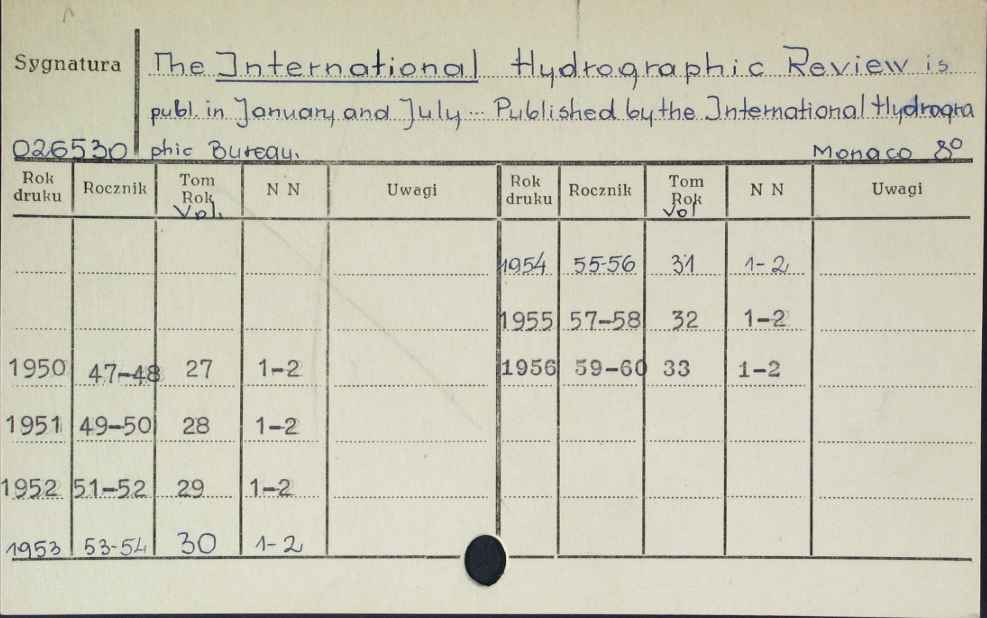 Sygnatura The International Hydrographic Review is
publ. in January and July ... Published by the International Hydrogra
026530 phic Bureau. Monaco 8º
Rok druku Rocznik Tom Rok Vol. N N Uwagi Rok druku Rocznik Tom Rok Vol N N Uwagi
1954 55-56 31 1-2
1955 57-58 32 1-2
1950 47-48 27 1-2 1956 59-60 33 1-2
1951 49-50 28 1-2
1952 51-52 29 1-2
1953 53-54 30 1-2